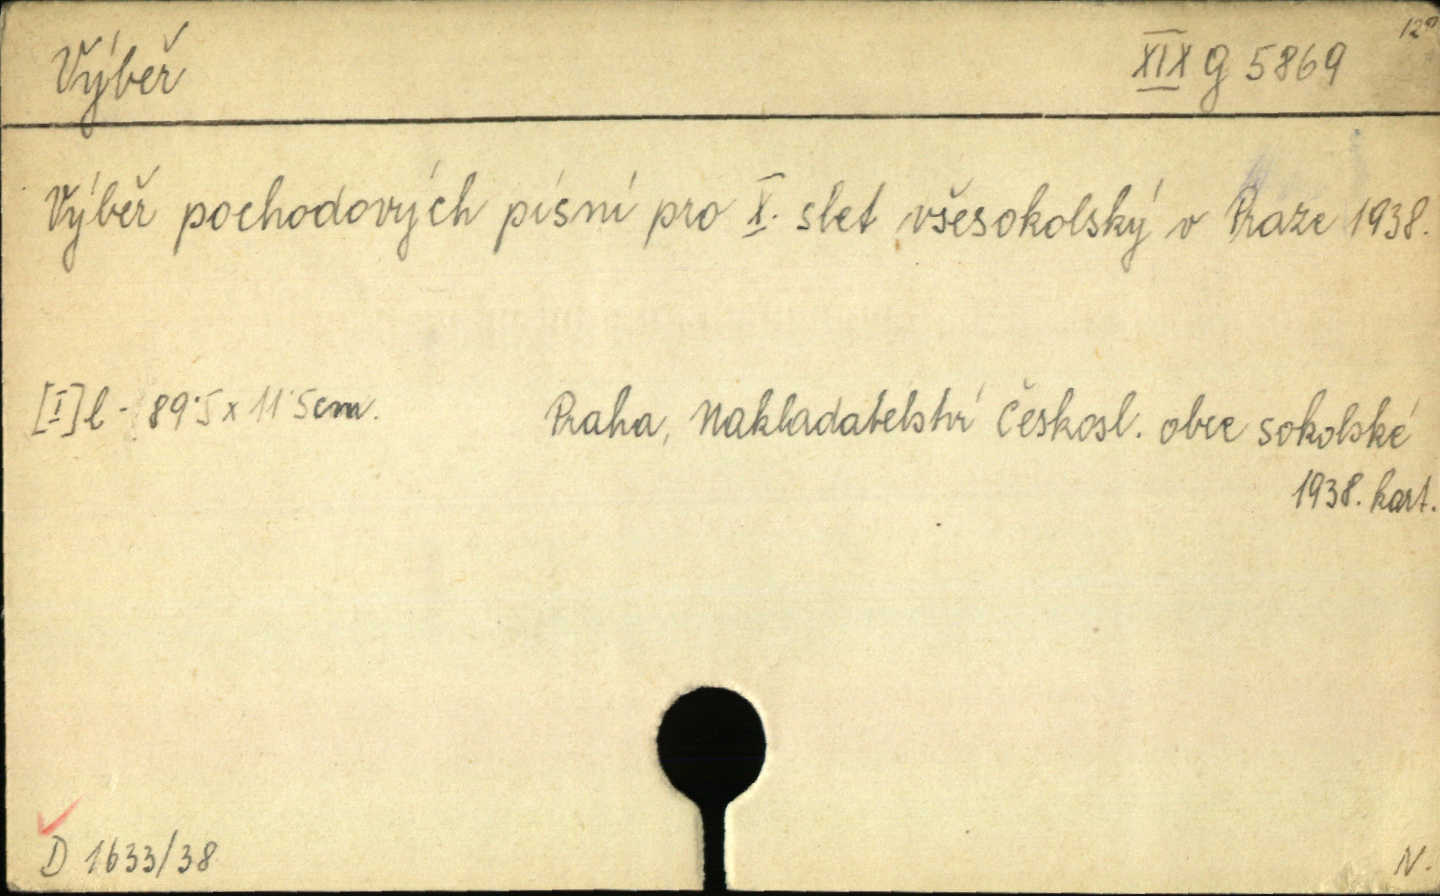 Výběř XIX g 5869
Výběř pochodových písní pro X. slet všesokolský v Praze 1938.
[I] l - 89·5 x 11·5 cm. Praha, Nakladatelství Českosl. obce sokolské
1938. kart.
D 1633/38 N.